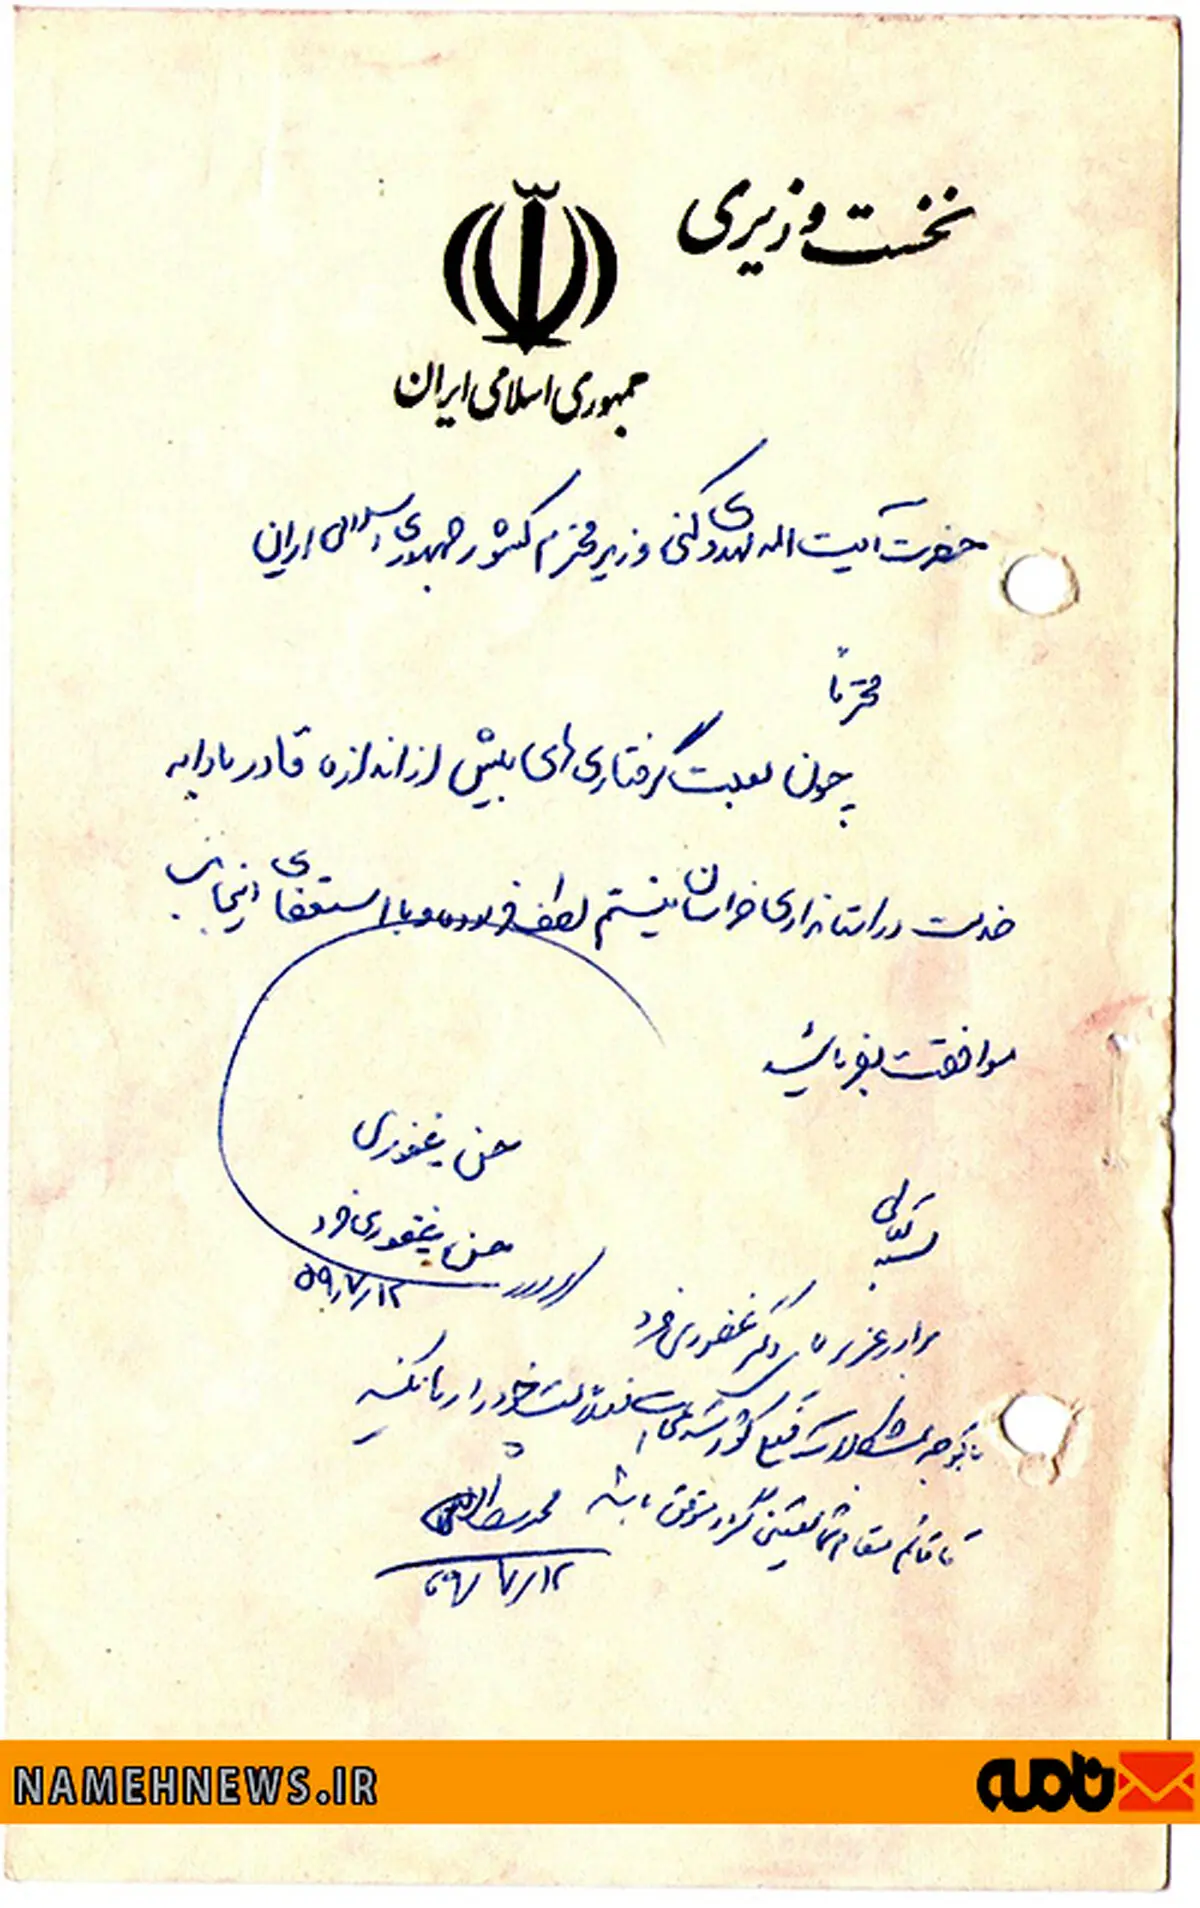 نخست وزیری
جمهوری اسلامی ایران
حضرت آیت اله مهدوی کنی وزیر محترم کشور جمهوری اسلامی ایران
محترماً
چون بعلت گرفتاری های بیش از اندازه قادر بادامه
خدمت در استانداری خراسان نیستم لطف فرموده و با استعفای اینجانب
موافقت بفرمائید
حسن غفوری
حسن غفوری فرد
۵۹/۷/۱۲
بسمه تعالی
برادر عزیر آقای دکتر غفوری فرد
با توجه بمشکلات کشور خود را رها نکنید
تا قائم مقام شما تعیین گردد موفق باشید
۵۹/۷/۱۲
NAMEHNEWS.IR
نامه